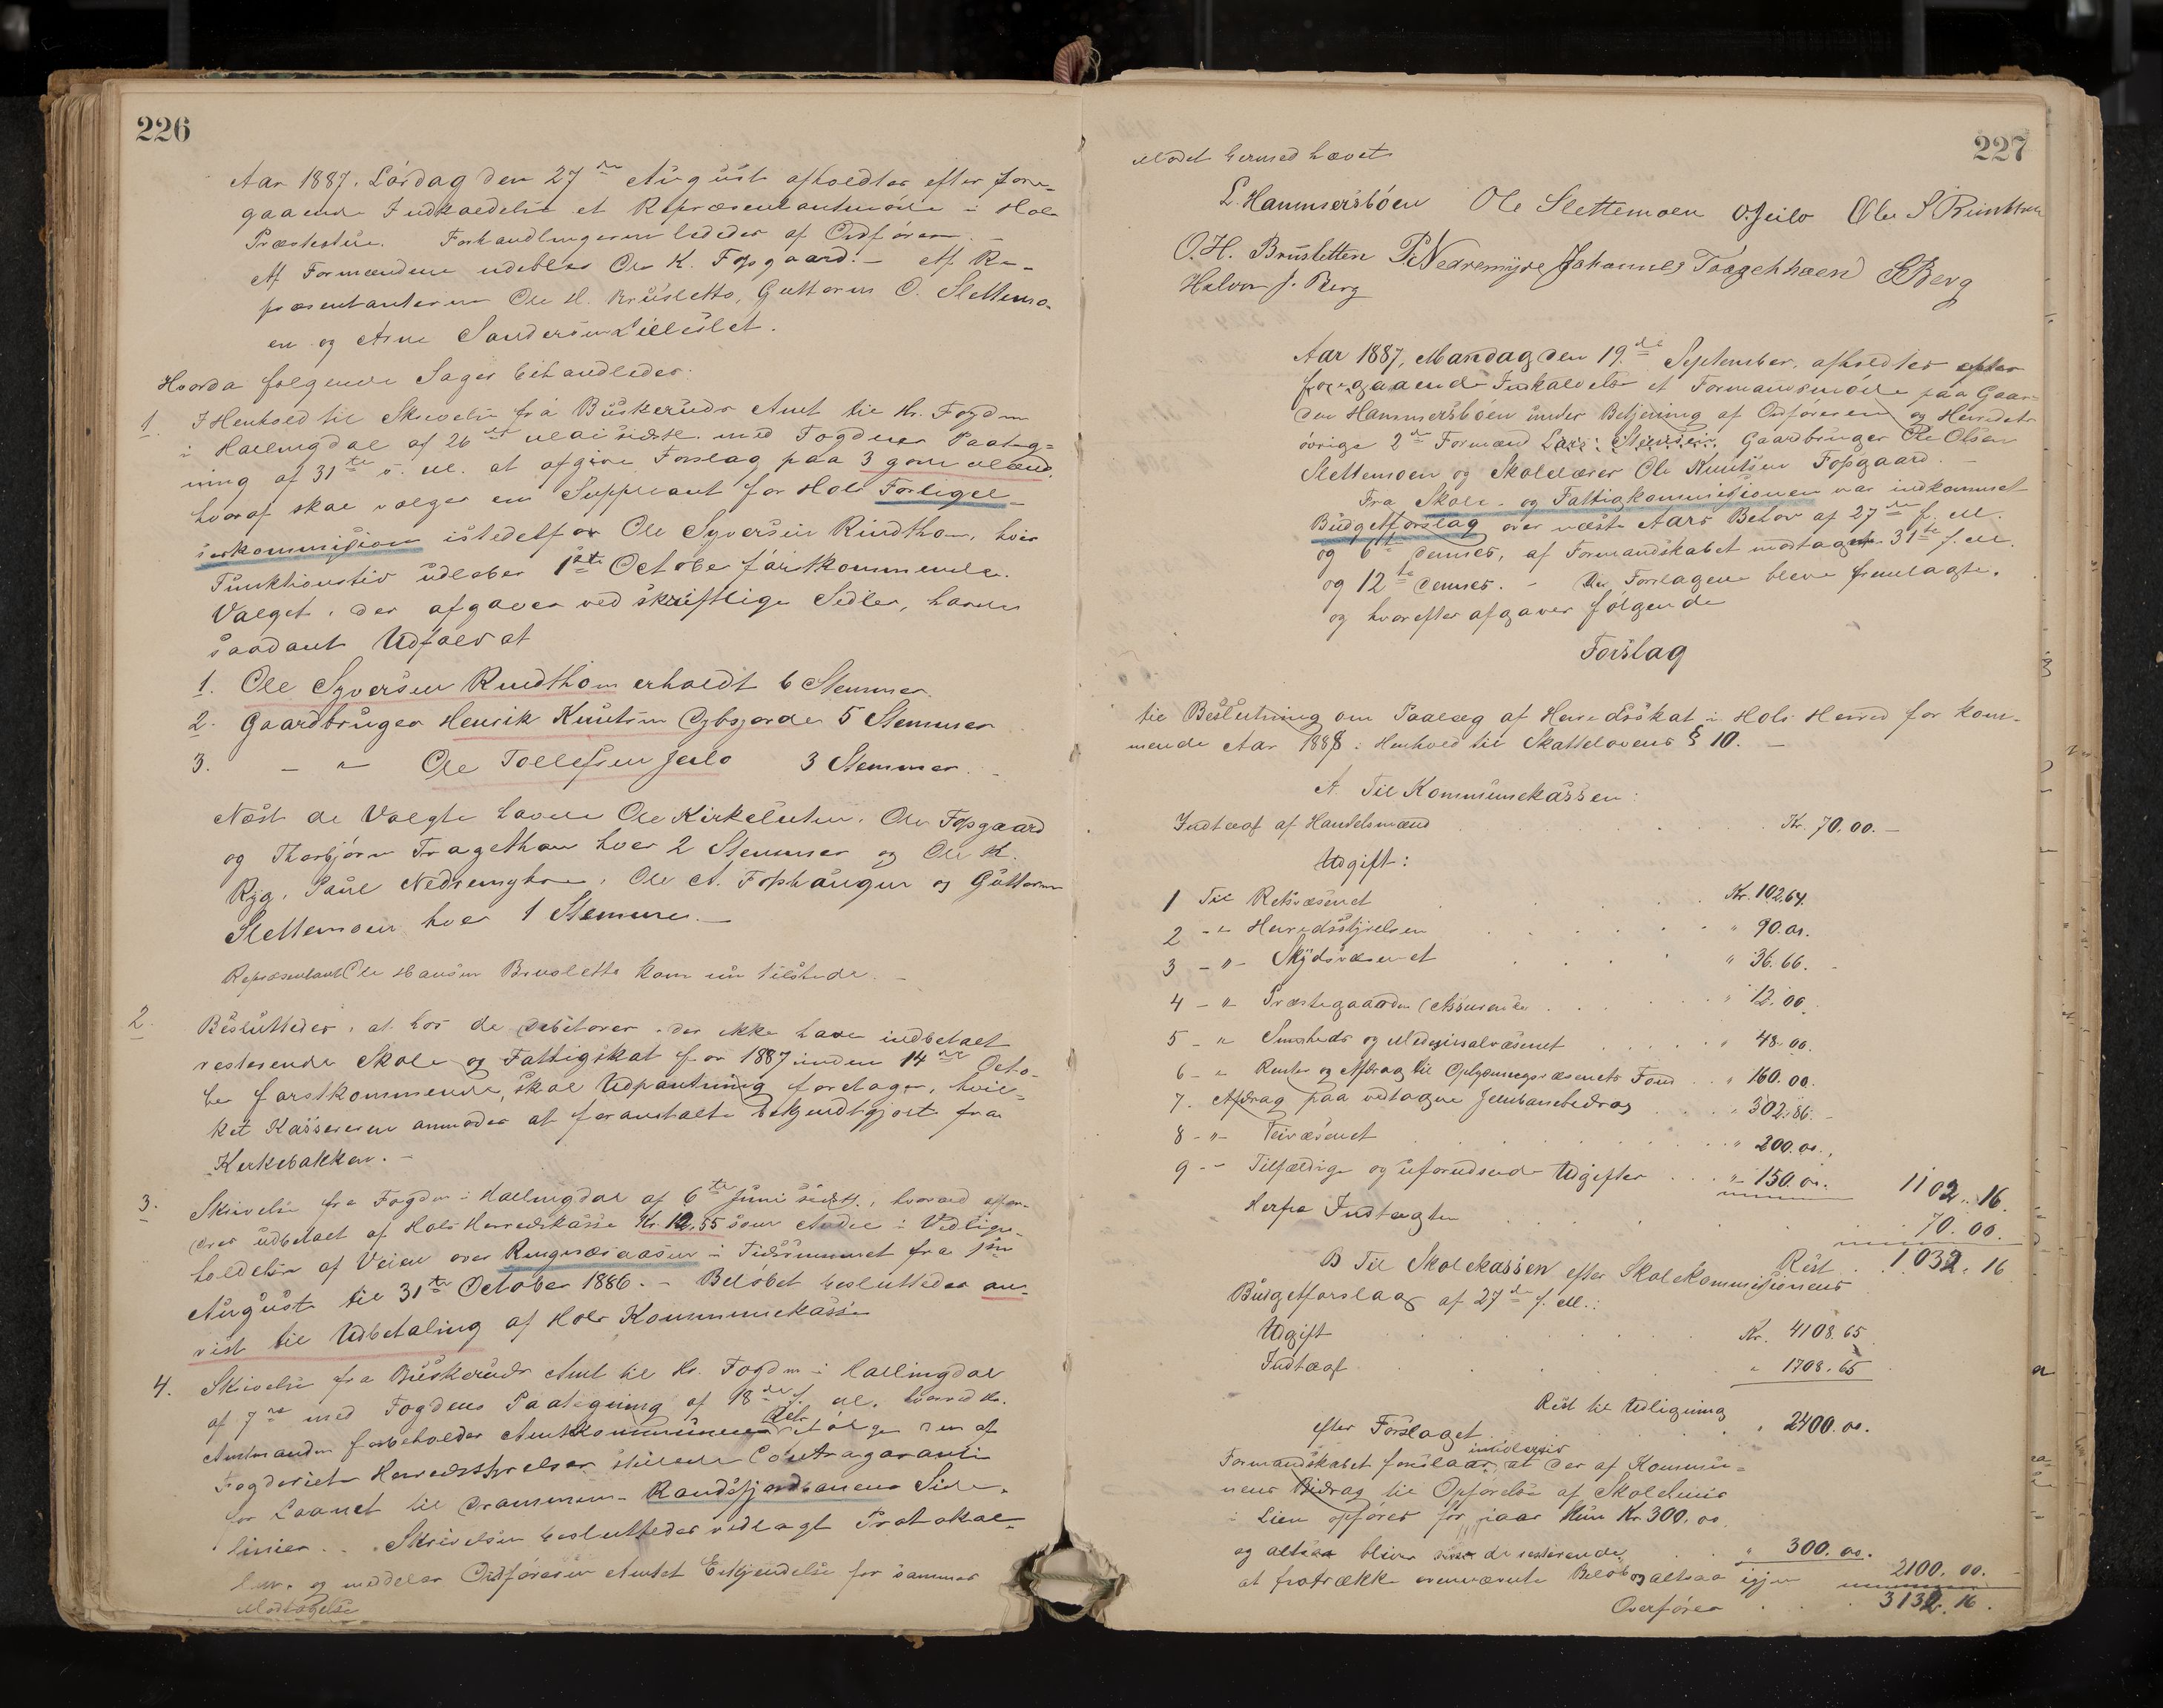 226
Aar 1887. Lørdag den 27de August afholdtes efter fore-
gaaende Indkaldelse et Repræsentantmøde i Hols
Præstestue. Forhandlingerne lededes af Ordføreren. —
Af Formændene udeblev Ole K. Fopgaard. — Af Re-
præsentanterne Ole H. Brusletto, Guttorm O. Slettemo-
en og Arne Sandersen Lilleslet.
Hvorda følgende Sager behandledes:
1. I Henhold til Skrivelse fra Buskeruds Amt til Hr. Fogden
i Hallingdal af 26de Mai sidstl. med Fogdens Paateg-
ning af 31te s. M. at afgive Forslag paa 3 gode Mænd,
hvoraf skal vælges en Suppleant for Hols Forligel-
seskommission istedetfor Ole Syversen Rindthom, hvis
Funktionstid udløber 1ste October førstkommende.
Valget, der afgaves ved skriftlige Sedler, havde
saadant Udfald at
1. Ole Syversen Rindthom erholdt 6 Stemmer.
2. Gaardbruger Henrik Knutsen 5 Stemmer
3. — " — Ole Tollefsen Jeilo 3 Stemmer. —
Næst de Valgte havde Ole Kirkeluten, Ole Fopgaard
og Thorbjørn Tragethon hver 2 Stemmer og Ole K.
Ryg, Paul Nedremyhre, Ole A. Fophaugen og Guttorm
Slettemoen hver 1 Stemme. —
Repræsentant Ole Hansen Brusletto kom nu tilstede. —
2. Besluttedes, at hos de Debitorer, der ikke have indbetalt
resterende Skole og Fattigskat for 1887 inden 14de Octo-
ber førstkommende, skal Udpantning foretages, hvil-
ket Kassereren anmodes at foranstalte bekjendtgjort fra
Kirkebakken. —
3. Skrivelse fra Fogden i Hallingdal af 6te Juni sidstl., hvorved affor-
dres udbetalt af Hols Herredskasse Kr. 12,55 som Andel i Vedlige-
holdelse af Veien over Ringnesaasen i Tidsrummet fra 1ste
August til 31te October 1886. — Beløbet besluttedes an-
vist til Udbetaling af Hols Kommunekasse
4. Skrivelse fra Buskeruds Amt til Hr. Fogden i Hallingdal
af 7de med Fogdens Paategning af 18de f. M. hvorved Hr.
Amtmanden forbeholder Amtskommunen Ret ifølge den af
Fogderiets Herredsstyrelser stillede Contragaranti
for Laanet til Drammen-Randsfjordbanens Side-
linier. — Skrivelsen besluttedes vedlagt Protokol-
len, og meddeler Ordføreren Amtet Erkjendelse for sammes
Modtagelse
227
Mødet hermed hævet
L. Hammersbøen Ole Slettemoen O. Jeilo Ole S Rindthom
O.H. Brusletten P. Nedremyre Johannes Traagethoen S Berg
Halvor J. Berg
Aar 1887, Mandag den 19de September, afholdtes efter
foregaaende Indkaldelse et Formandsmøde paa Gaar-
den Hammersbøen under Betjening af Ordføreren og Herredets
øvrige 2de Formænd Gaardbruger Ole Olsen
Slettemoen og Skolelærer Ole Knutsen Fopgaard. —
Fra Skole- og Fattigkommissionen var indkommet
Budgetforslag over næste Aars Behov af 27de f. M.
og 6te dennes, af Formandskabet modtaget 31te f. M.
og 12te dennes. — Forslagene bleve fremlagte,
og hvorefter afgaves følgende
Forslag
til Beslutning om Paalæg af Herredsskat i Hols Herred for kom-
mende Aar 1888 i Henhold til Skattelovens § 10. —
A. Til Kommunekassen:
Indtægt af Handelsmænd Kr. 70.00. —
Udgift:
1 Til Retsvæsenet Kr. 102.64.
2 - " Herredsstyrelsen " 90.00.
3 - " - Skydsvæsenet " 36.66.
4 - " Præstegaarden (Assurance " 12.00.
5 - " Sundheds og Medicinalvæsenet " 48.00.
6 - " Renter og Afdrag til Oplysningsvæsenets Fond " 160.00.
7. Afdrag paa vedtagne Jernbanebidrag " 302.86. -
8 - " - Veivæsenet " 200.00.
9 - " Tilfældige og uforudseede Udgifter " 150.00. 1102.16.
Herfra Indtægten 70.00.
Rest 1032.16
B Til Skolekassen efter Skolekommissionens
Budgetforslag af 27de f. M.:
Udgift Kr. 4108.65
Indtægt " 1708.65
Rest til Udligning
efter Forslaget " 2400.00.
Formandskabet foreslaar imidlertid, at der af Kommu-
nens Bidrag til Opførelse af Skolehuus
i Lien opføres for iaar kun Kr 300.00
og altsaa bliver de resterende " 300.00.
at fratrække ovennævnte Beløb og altsaa igjen 2100.00.
Overføres 3132.16.